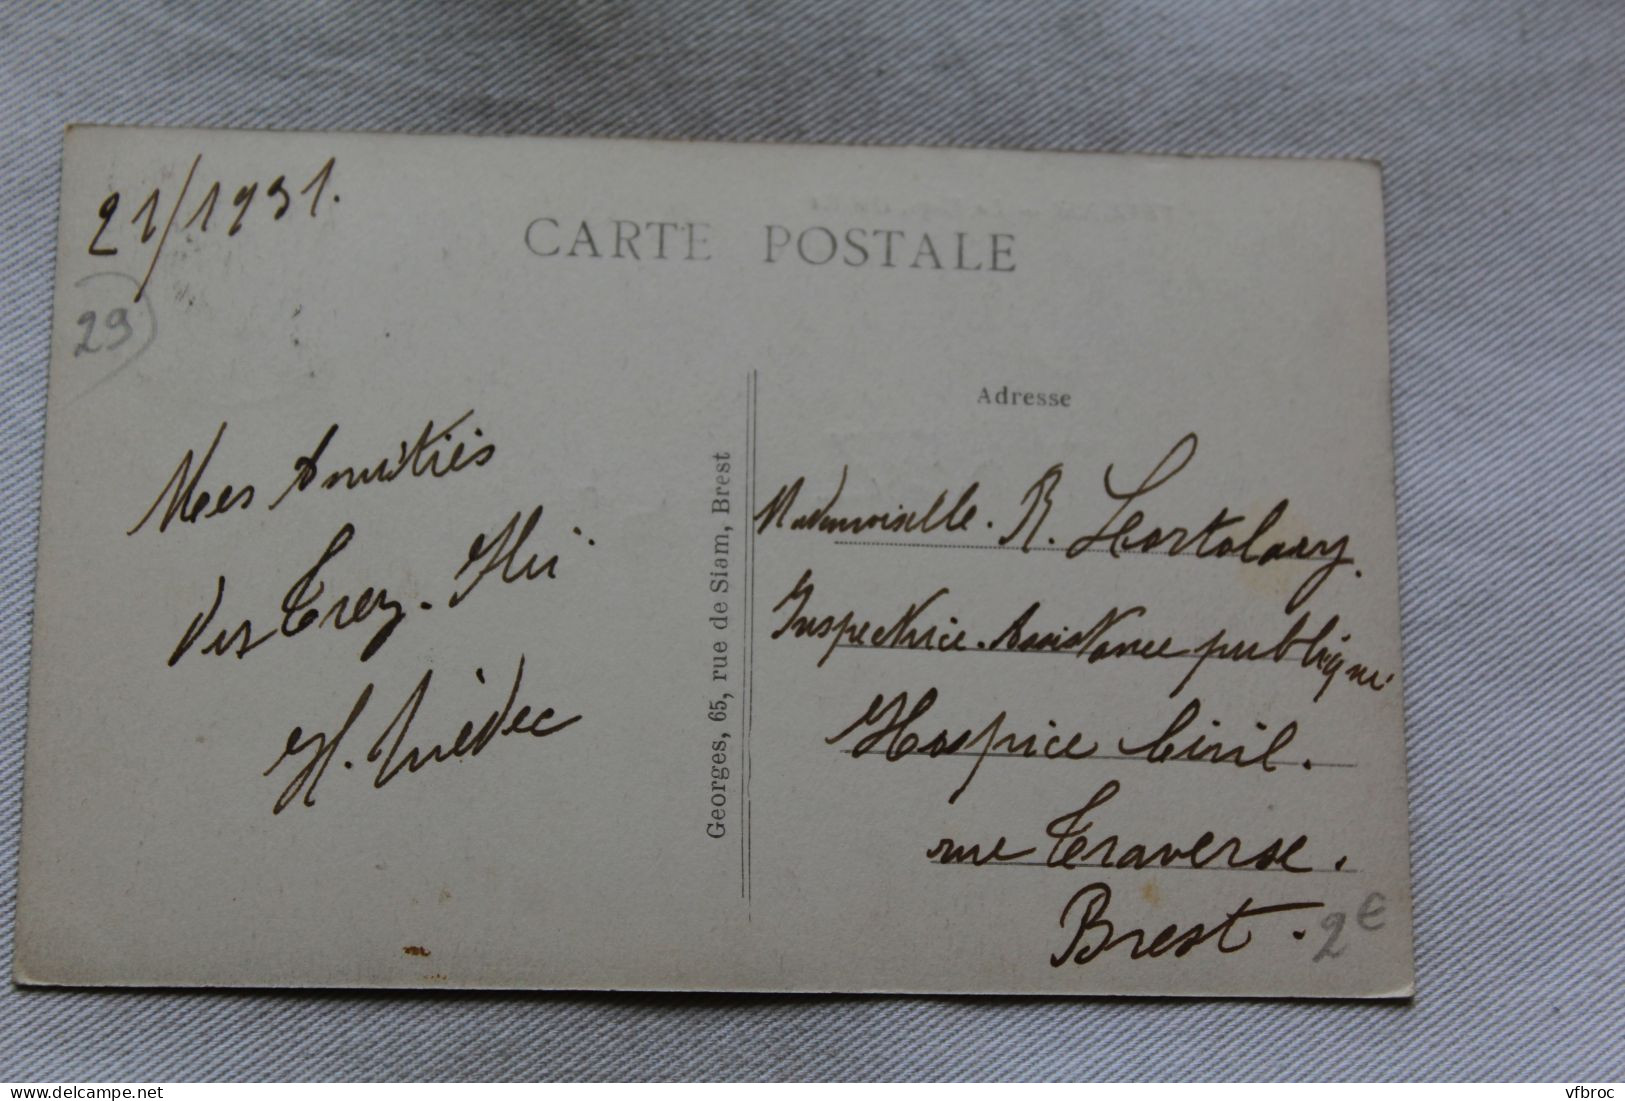 21/1931.
CARTE POSTALE
29
Adresse
Mes Amitiés
H.
Georges, 65, rue de Siam, Brest
Mademoiselle. R.
Inspectrice. Assistance publique
Hospice Civil.
rue Traverse.
Brest.
2€
www.delcampe.net
vfbroc